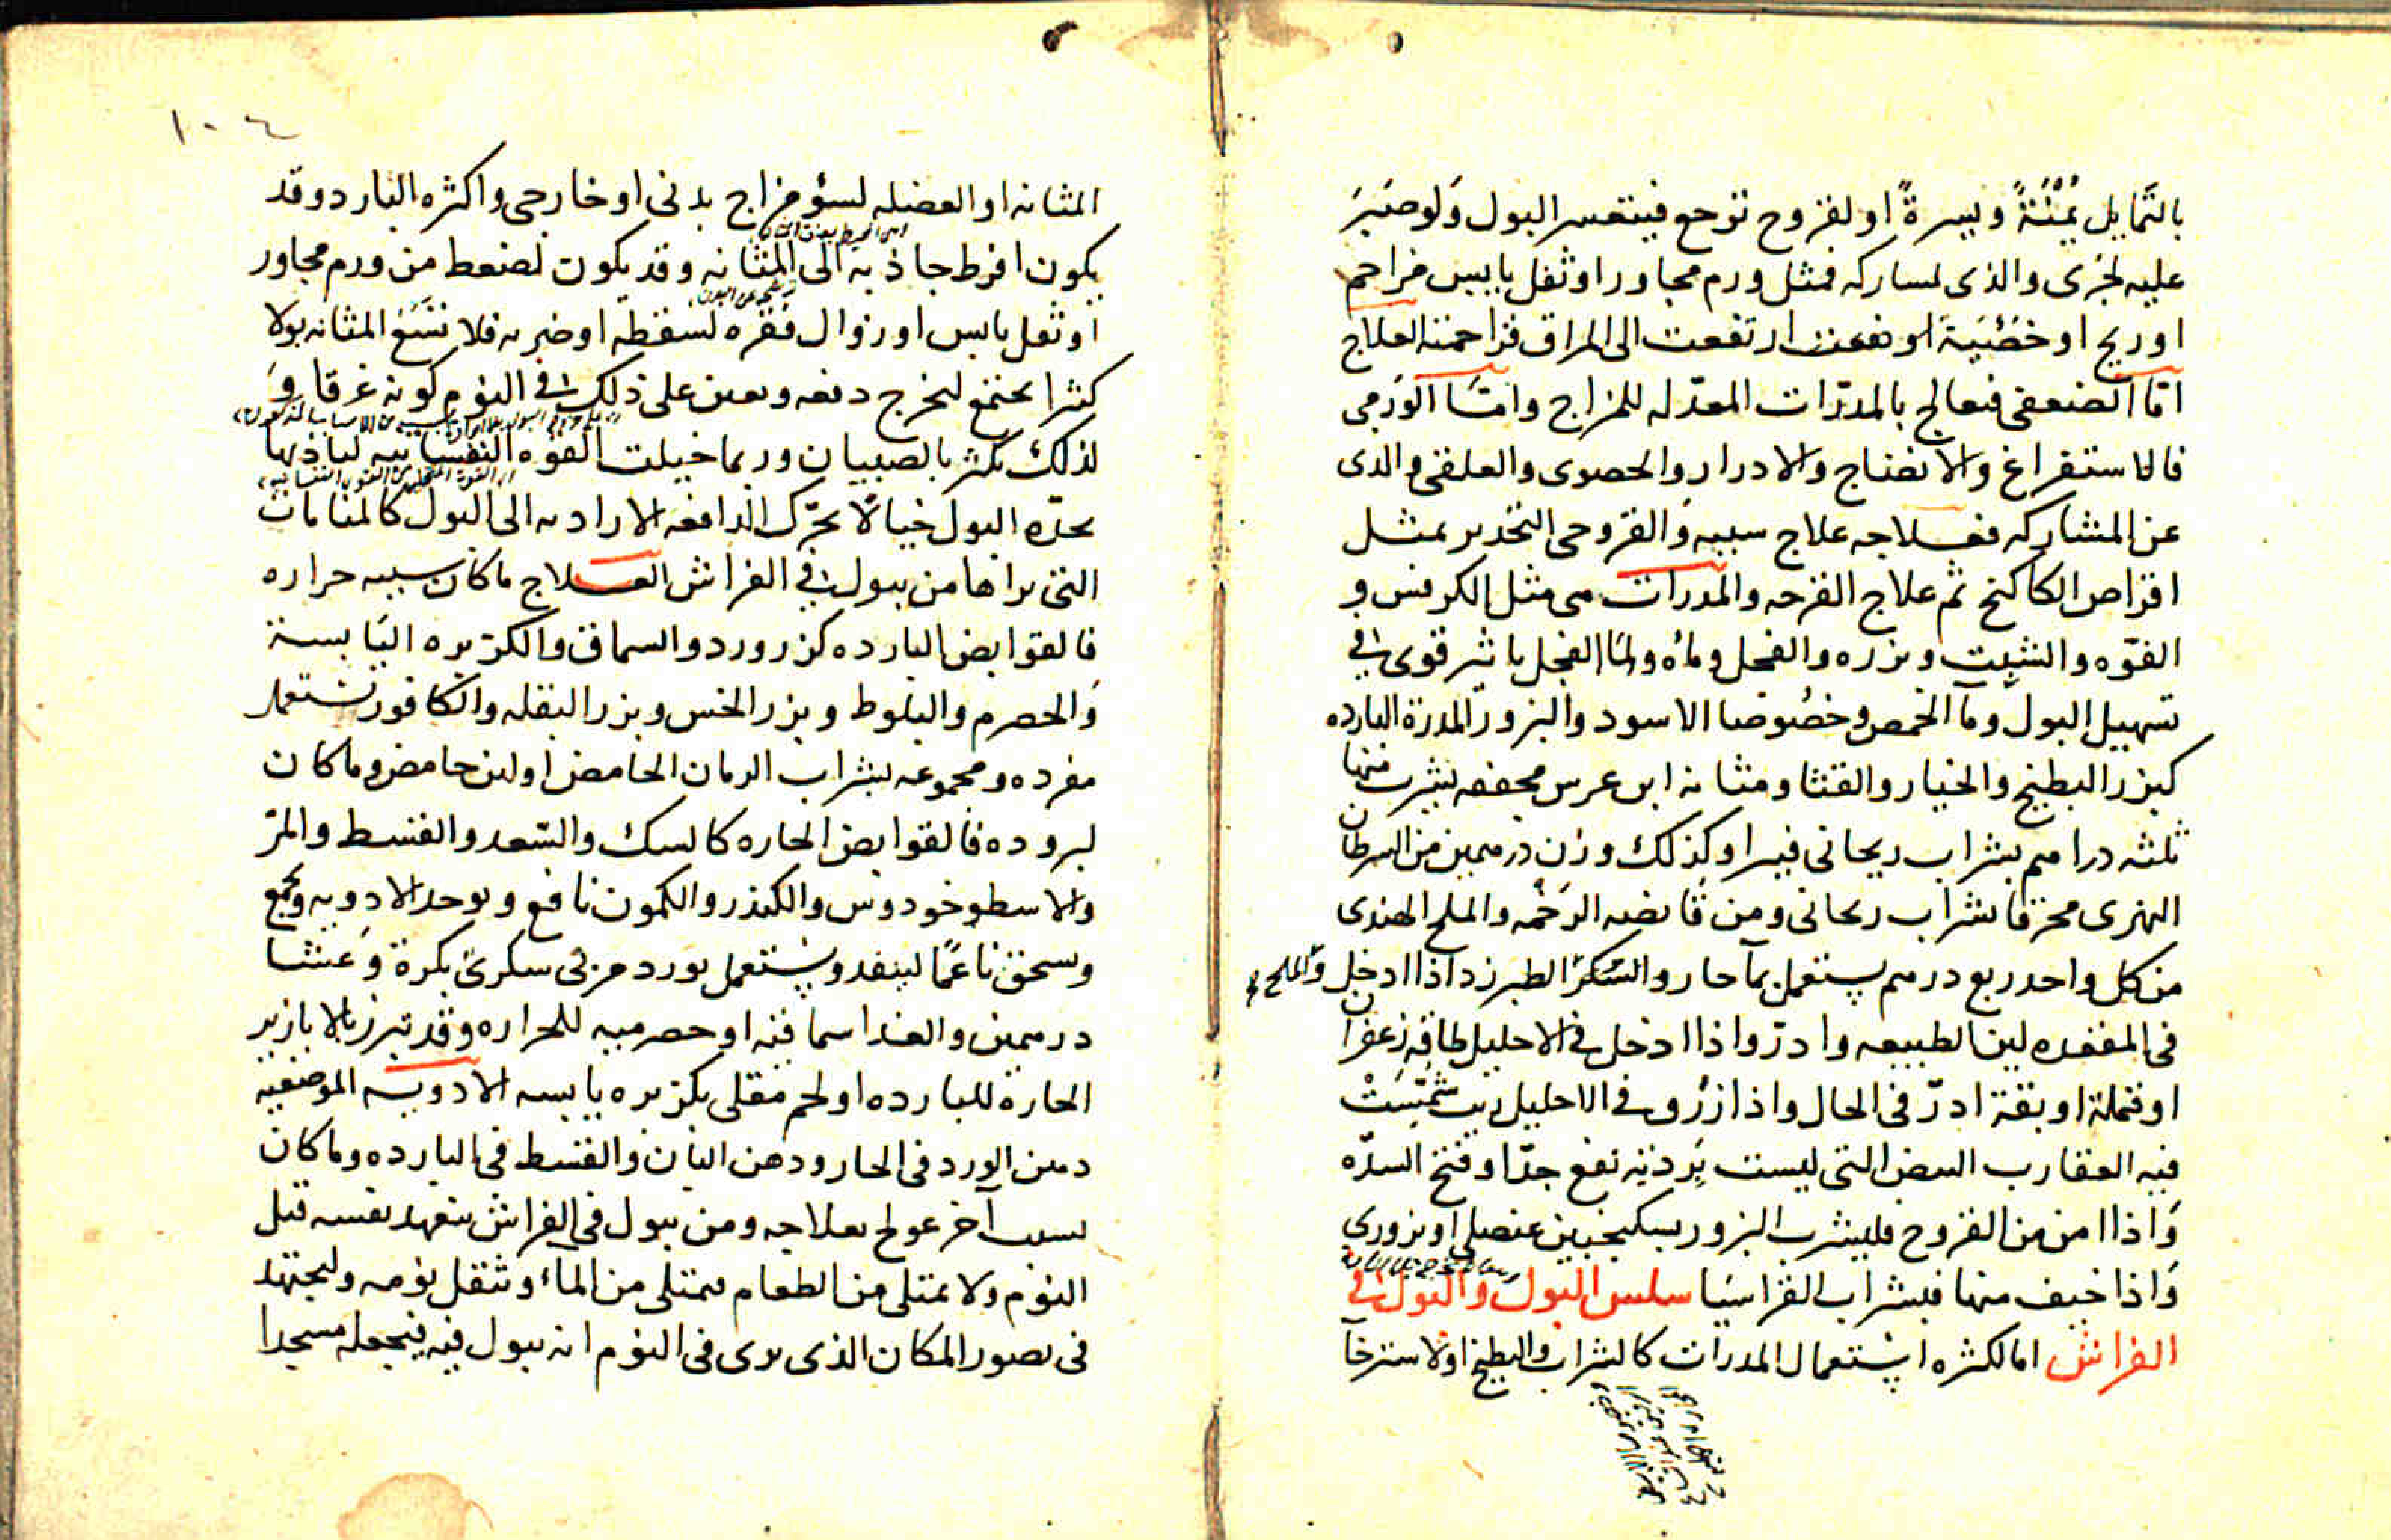 بالتمايل يُمْنَةً ويسرةً او لقروح توجع فيتعسر البول وَلو صَبَرَ
عليه لجَرى والذى لمساركه فمثل ورم مجاور او ثفل يابس مزاحم
او ريح او خصيَة ارتفعت الى المراق فزاحمت العلاج
امّا الضعفى فيعالج بالمدرّات المعدّله للمزاج وامّا الوَرَمى
فالاستفراغ والانضاج والادرار والحصوى والعلقى والذى
عن المشاركه فعلاجه علاج سببه وَالقروحى التخدير بمثل
اقراص الكاكنج ثم علاج القرحه والمدرات هى مثل الكرفس و
الفوّه والشبِت وبزره والفجل وماؤه ولمآ الفجل تاثير قوى فى
تسهيل البول ومآ الحمص وخصُوصا الاسود والبزور المدرّة البارده
كبزر البطيخ والخيار والقثا ومثانه ابن عرس مجففه يشرب منها
ثلثه دراهم بشراب ريحانى فيبرا وكذلك وزن درهمين من السرطان
النهرى محرقا بشراب ريحانى ومن قَانصه الرَخَمه والملح الهندى
من كل واحد ربع درهم يستعمل بمآ حار والسُكرّ الطبرزد اذا ادخل والملح
فى المقعده لين الطبيعه وادرّ واذا ادخل فى الاحليل طاقه زعفران
او قملة او بقة ادرّ فى الحال واذا زُرق فى الاحليل زيت شُمّسَتْ
فيه العقارب البيض التى ليست بِرَديّه نفع جدّا وفتح السدّه
وَاذا امن من القروح فليشرب البزور بسكنجبين عنصلى او بزورى
وَاذا خيف منها فبشراب الفراسيَا سلس البول وَالبول فى
الفراش اما لكثره استعمال المدرات كالشراب والبطيخ او لاسترخآ
١٠٤
المثانه او العضله لسؤ مزاج بدنى او خارجى واكثره البارد وقد
يكون افرط جاذبه الى المثانه وقد يكون لضغط من ورم مجاور
او ثفل يابس او زوال فقره لسقطه او ضربه فلا تسَع المثانه بولا
كثيرا يجتمع ليخرج دفعه ويعين على ذلك فى النوم كونه غرقا وَ
لذلك يكثر بالصبيان وربما خيلت القوه النفسانيه لتاذيها
بحدّه البول خيالا يحرّك الدافعه الاراديه الى البول كالمنامات
التى يراها من يبول فى الفراش العلاج ما كان سببه حراره
فالقوابض البارده كزر ورد والسماق والكزبره اليَابسة
وَالحصرم والبلوط وبزر الخس وبزر البقله والكافور تستعمل
مفرده ومجموعه بشراب الرمان الحامض او لبن حامض وما كان
لبروده فالقوابض الحاره كالسك والسّعد والقسط والمرّ
والاسطوخودوس والكندر والكمون نافع ويوخد الادويه وتجمع
وتسحق ناعمًا لينفد ويستعمل بورد مربى سكرىّ بكرةً وَعشيا
درهمين والغدا سماقيه او حصرميه للحراره وقد تبزر بالابازير
الحارة للبارده او لحم مقلى بكزبره يابسه الادويه الموضعيه
دهن الورد فى الحار ودهن البان والقسط فى البارده وما كان
بسبب آخر عولج بعلاجه ومن يبول فى الفراش يتعهد نفسه قبل
النوم ولا يمتلى من الطعام فيمتلى من الماء وثقل نومه وليجتهد
فى تصور المكان الذى يرى فى النوم انه يبول فيه فيجعله مسجدا